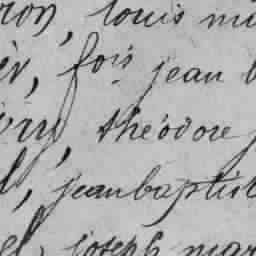 ron, louis mi
èr, fois jean b
théodore j
l, jeanbaptist
el, joseph mar